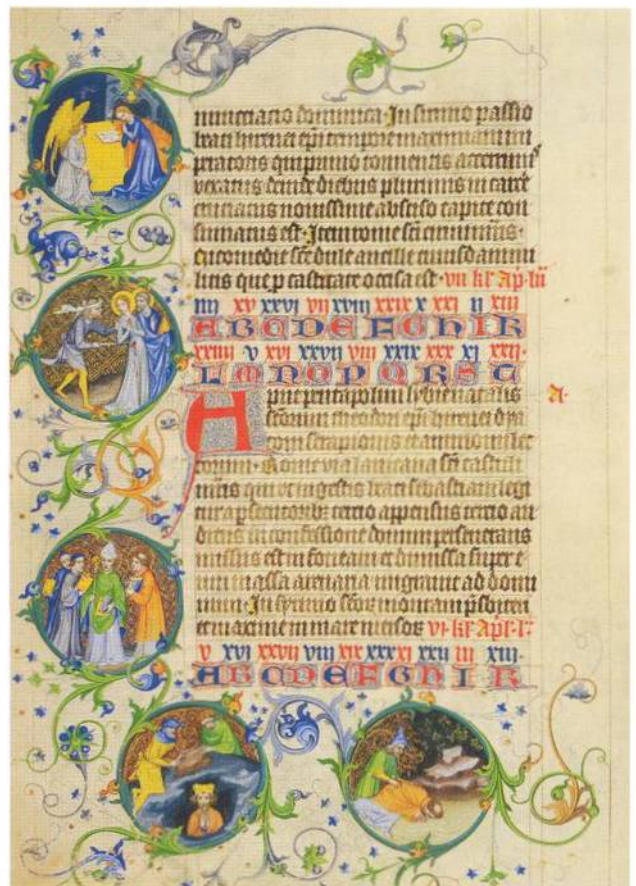 nunctiatio dominica. In sirmio passio
beati hirenei epi tempore maximiani im
peratoris qui primo tormentis acerrimis
vexatus deinde diebus plurimis in carce
cruciatus novissime absciso capite con
sumatus est. Item rome sci
Nicomedie sce dule ancille cuiusdam mi
litis que p castitate occisa est. vii kl' Ap. lu
iiii xv xxvi vii xviii xxix x xxi ii xiii
A B C D E F G H I K
xxiiii v xvi xxvii viii xxix xxx xi xxii.
L M N O P Q R S T
Aput pentapolim lybie natalis A.
scorum theodori epi hirenei dya
coni serapionis et ammonii lec
torum. Rome via lavicana sci castuli
mris qui ut in gestis beati sebastiani legi
tur a psecutorib tercio appensus tercio au
ditus in confessione domini perseverans
missus est in foveam et dimissa super e
um massa arenaria migravit ad domi
num. In syrmio scor montani psbiteri
et maxime in mare mersor vi. kl' Apl. l.
v xvi xxvii viii xix xxx xi xxii iii xiii.
A B C D E F G H I K